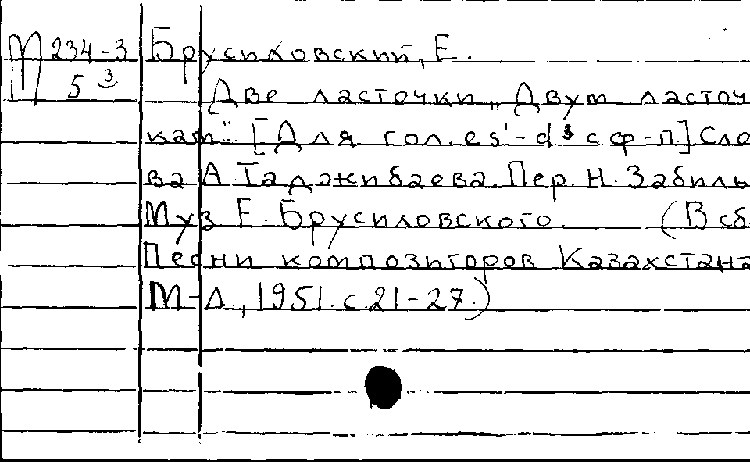 М 234-3 Брусиловский, Е.
5 3 Две ласточки „Двум ласточ
кам" [Для гол. es'-d³ с ф-п.] Сло
ва А. Таджибаева. Пер. Н. Забилы
Муз Е. Брусиловского. (В сб
Песни композиторов Казахстана
М-Л, 1951. с 21-27.)